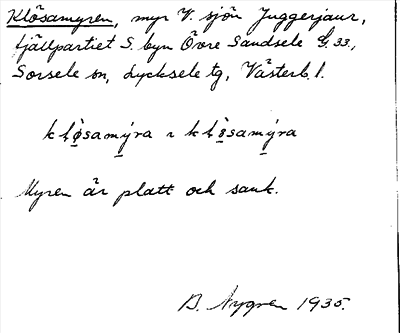 Klösamyren, myr V. sjön Juggerjaur,
fjällpartiet S. byn Övre Sandsele L. 33,
Sorsele sn, Lycksele tg, Västerb. l.
kløsamýra ~ klösamýra
Myren är platt och sank.
B. Nygren 1935.